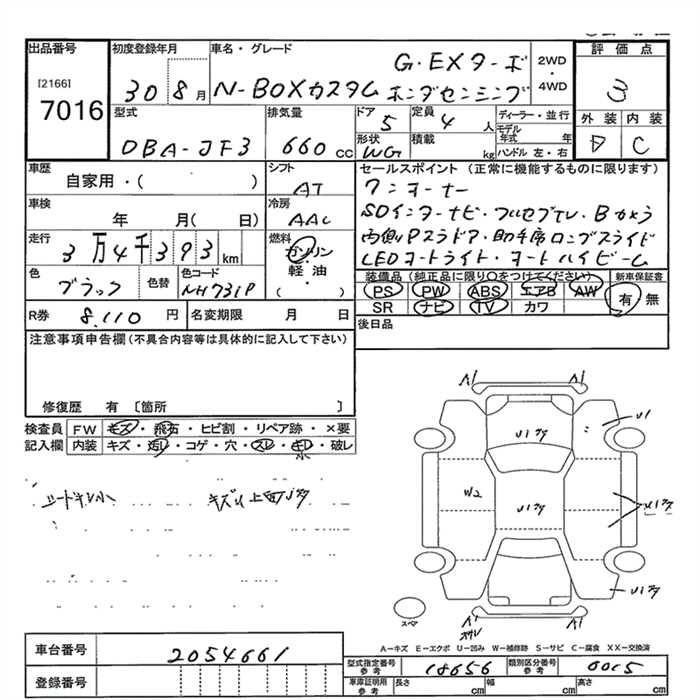 出品番号
[2166]
7016
初度登録年月
30 8月
車名・グレード
G・EXターボ
N-BOXカスタム ホンダセンシング
2WD
・
4WD
評価点
3
外装 内装
D C
型式
DBA-JF3
排気量
660 cc
ドア
5
定員
4 人
形状
WG
積載
kg
ディーラー・並行
モデル年式 年
ハンドル 左・右
車歴
自家用・( )
シフト
AT
車検
年 月( 日)
冷房
AAC
走行
3万4千393km
燃料
ガソリン
・
軽・油
( )
色
ブラック
色替
色コード
NH731P
R券
8,110 円
名変期限
月 日
セールスポイント (正常に機能するものに限ります)
ワンオーナー
SDインターナビ・フルセグTV・Bカメラ
両側Pスラドア・助手席ロングスライド
LEDオートライト・オートハイビーム
装備品(純正品に限り○をつけてください)
新車保証書
PS PW ABS エアB AW
SR ナビ TV カワ
有 無
後日品
注意事項申告欄(不具合内容等は具体的に記入して下さい)
修復歴 有 〔箇所 〕
検査員 FW キズ・飛石・ヒビ割・リペア跡・×要
記入欄 内装 キズ・汚レ・コゲ・穴・スレ・キレ・破レ
小
シートキレ小
A1 A1
U1
W2
A1 A1
スペア
A－キズ E－エクボ U－凹み W－補修跡 S－サビ C－腐食 XX－交換済
車台番号
2054661
登録番号
型式指定番号
参考
18656
類別区分番号
参考
0015
車庫証明用
参考
長さ cm
幅 cm
高さ cm